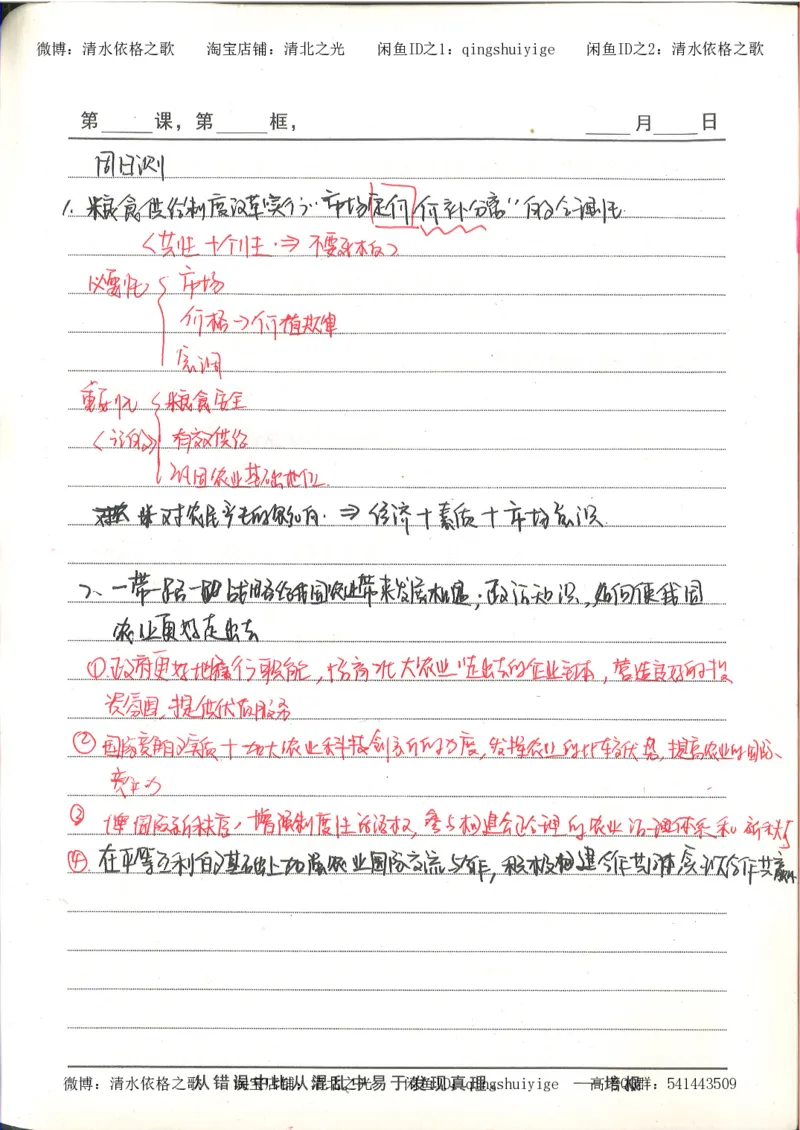 微博：清水依格之歌 淘宝店铺：清北之光 闲鱼ID之1：qingshuiyige 闲鱼ID之2：清水依格之歌
第 课，第 框， 月 日
周日测
1. 粮食供给制度改革实行“市场定价 价补分离”的合理性
<共性+个性⇒不要求本的>
必要性 { 市场
价格→价值规律
宏调
重要性 { 粮食安全
<目的> 有效供给
巩固农业基础地位
对农民 的 ⇒ 经济+素质+市场意识
2、一带一路 战略给我国农业带来发展机遇；政治知识，如何使我国
农业更好走出去
①政府更好地履行职能， 大农业“走出去的企业 ，营造良好的投
资氛围，提供优质服务
②国际竞的实质+加大农业科技创新的力度，发挥农业的比较优势，提高农业的国际
竞争力
③ 国际新秩序，增强制度性话语权，参与构建合理的农业治理体系和新秩序
④在平等互利的基础上加强农业国际交流与合作，积极构建合作共
从错误中比从混乱中易于发现真理。 ——培根
微博：清水依格之歌 淘宝店铺：清北之光 闲鱼ID：qingshuiyige 高考QQ群：541443509